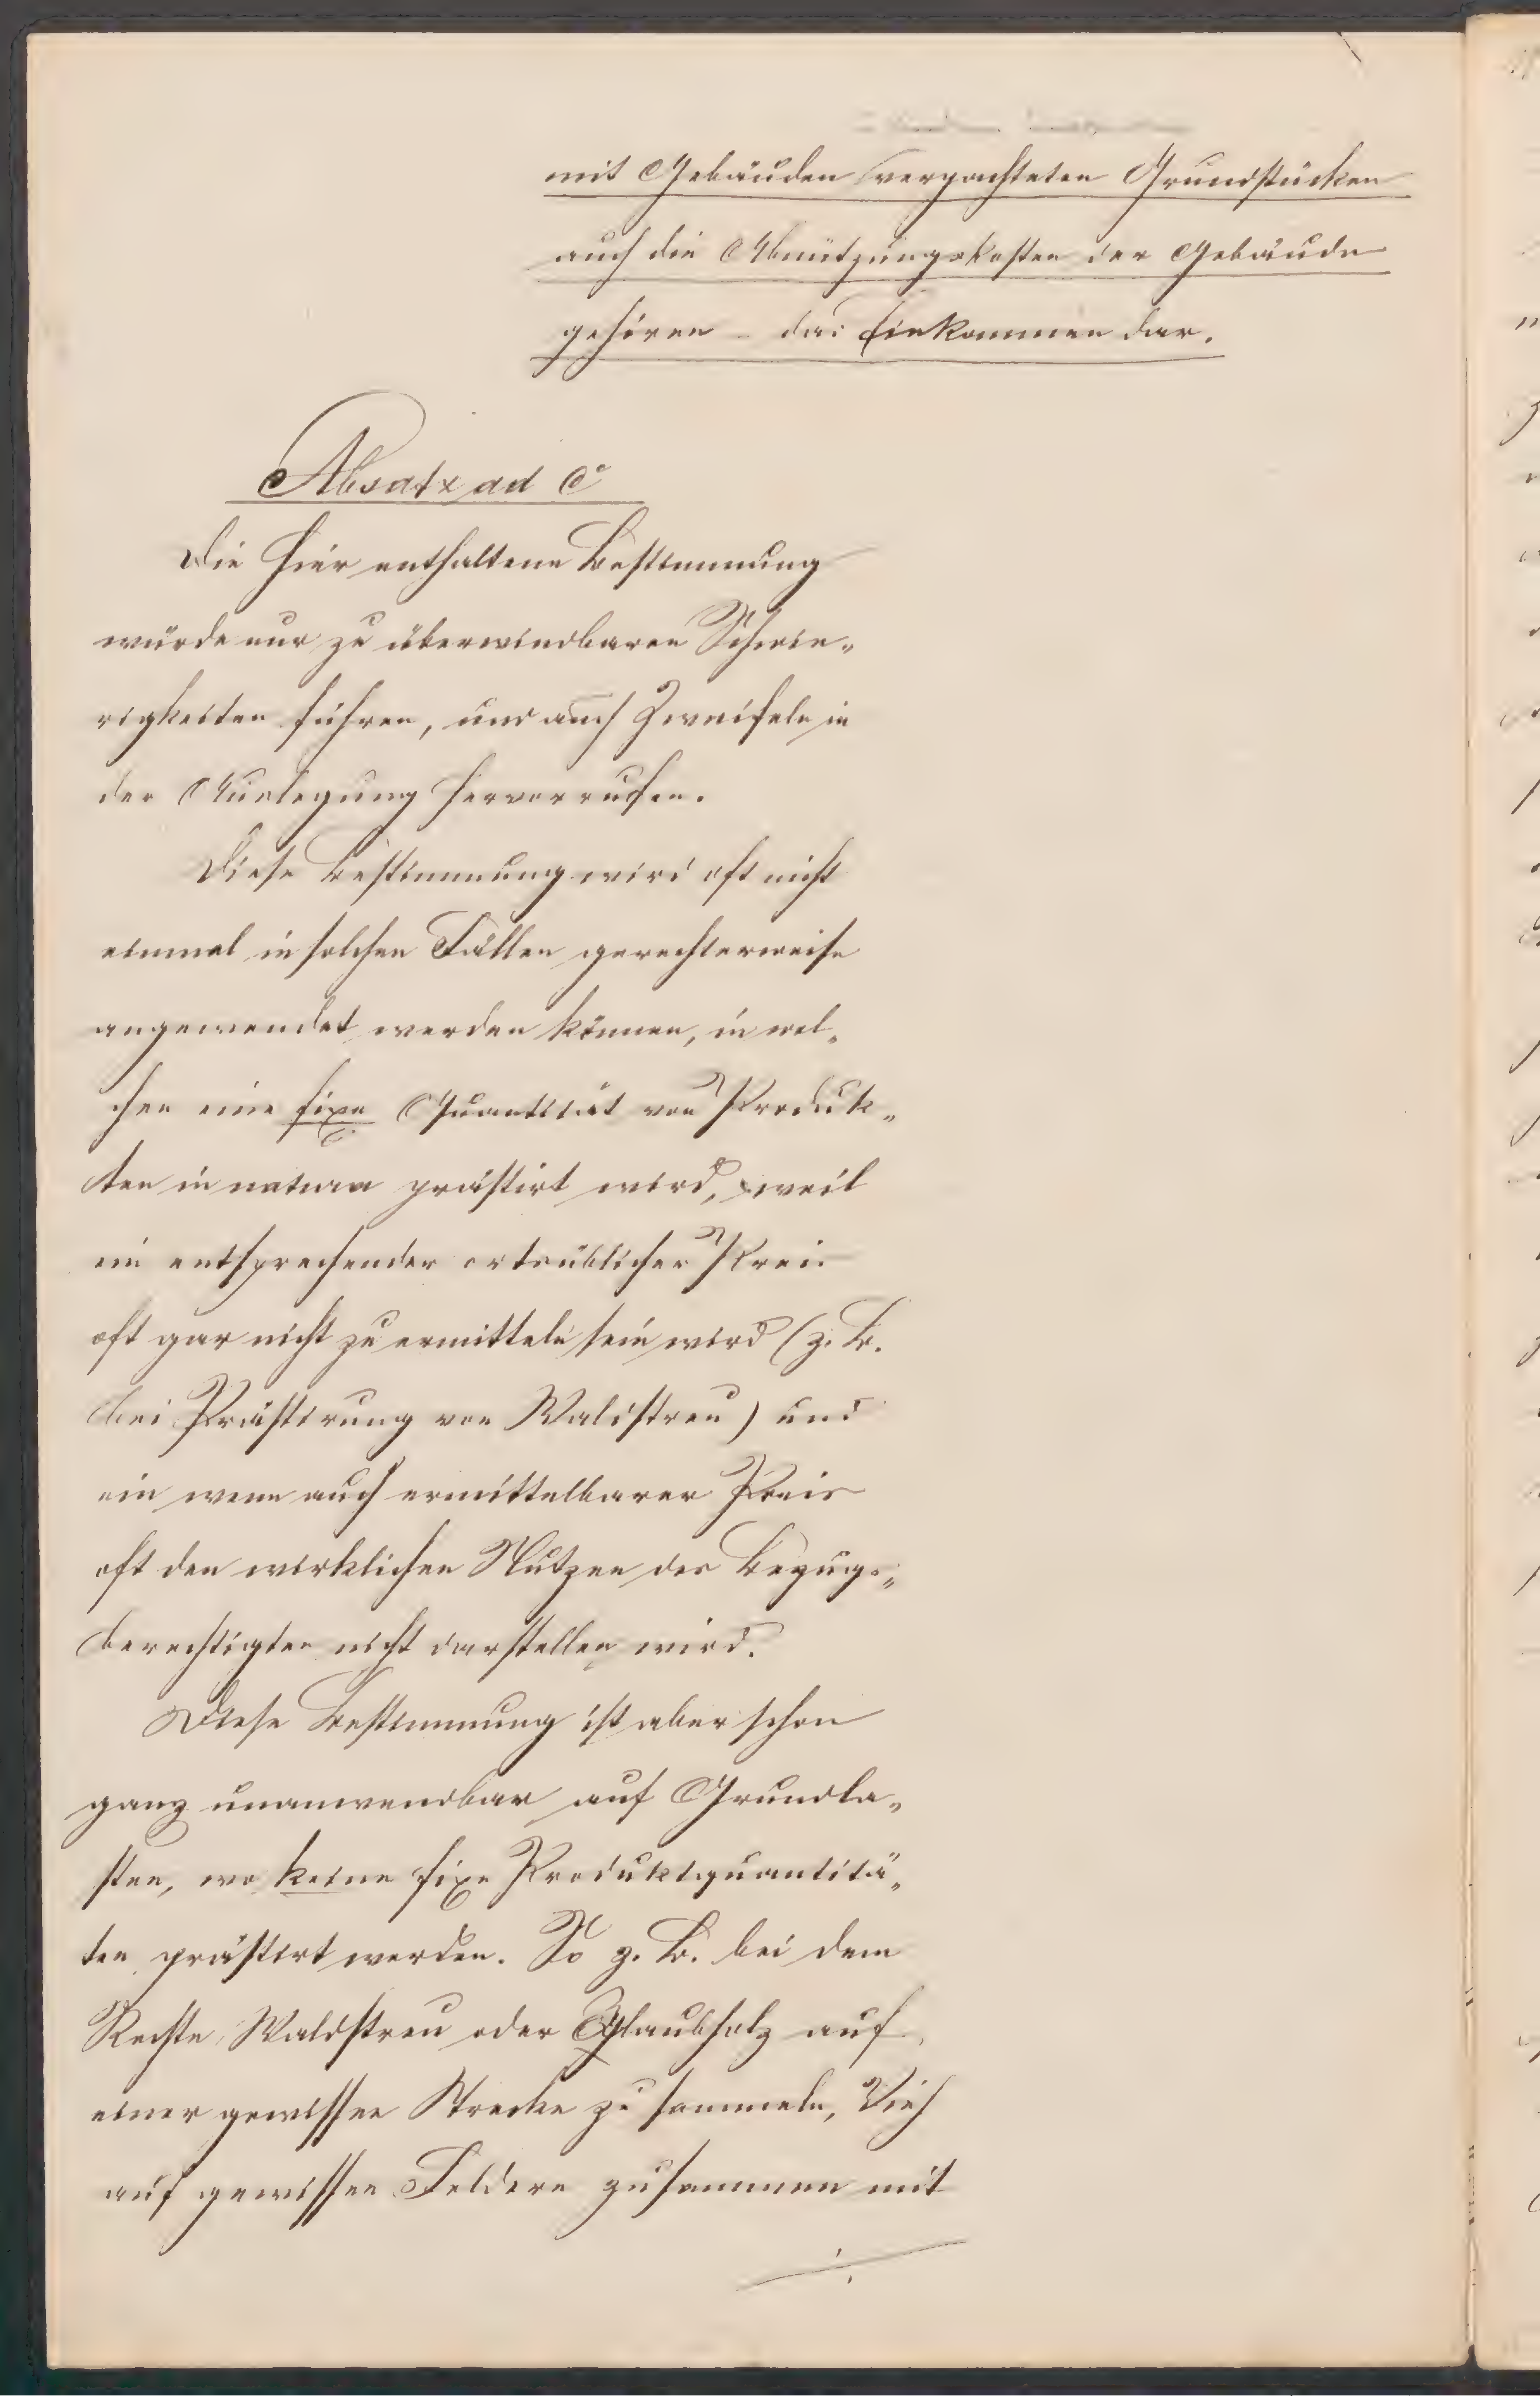 mit Gebäuden verpachteten Grundstücken
auch die Abnützungskosten der Gebäude
gehören – das Einkommen dar.
Absatz ad C
Die hier enthaltene Bestimmung
würde nur zu überwindbaren Schwie-
rigkeiten führen, und auch Zweifeln in
der Auslegung hervorrufen.
Diese Bestimmung wird oft nicht
einmal in solchen Fällen gerechterweise
angewendet werden können, in wel-
chen eine fixe Quantität von Produk-
ten in natura prästirt wird, weil
ein entsprechender ortsüblicher Preis
oft gar nicht zu ermitteln sein wird (z. B.
bei Prästirung von Waldstreu) und
ein wenn auch ermittelbarer Preis
oft den wirklichen Nutzen des Bezugs-
berechtigten nicht darstellen wird.
Diese Bestimmung ist aber schon
ganz unanwendbar auf Grundla-
sten, wo keine fixe Produktquantitä-
ten prästirt werden. So z. B. bei dem
Rechte Waldstreu oder Klaubholz auf
einer gewissen Strecke zu sammeln, Vieh
auf gewissen Feldern zusammen mit
./.